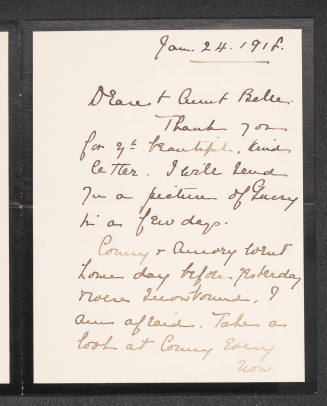 Jan. 24. 1918.
Dearest Aunt Belle.
Thank you
for yr beautiful, kind
letter. I will send
you a picture of
in a few days.
Conny & Amory went
home day before yesterday
were snowbound, I
am afraid. Take a
look at Conny every
now